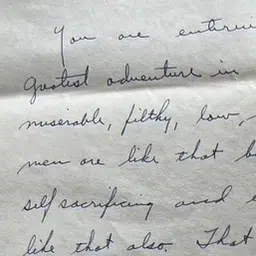 You are
greatest adventure in
miserable, filthy, low,
men are like that b
self sacrificing and
like that also. That